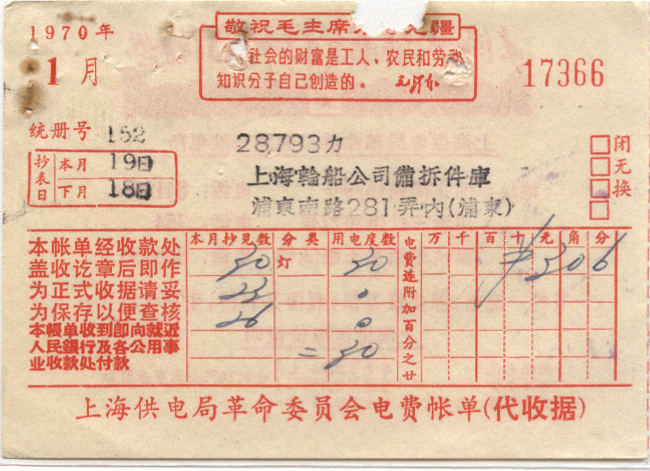 1970年
1月
敬祝毛主席万寿无疆
社会的财富是工人、农民和劳动
知识分子自己创造的。
毛泽东
17366
统册号 152
28,793力
抄表日
本月 19日
下月 18日
上海輪船公司備拆件庫
浦東南路281弄内(浦東)
闭
无
换
本帐单经收款处
盖收讫章后即作
为正式收据请妥
为保存以便查核
本帳单收到即向就近
人民銀行及各公用事
业收款处付款
本月抄见数 分类 用电度数 电费连附加百分之廿 万 千 百 十 元 角 分
30 灯 30 ¥306
23 0
26 0
=30
上海供电局革命委员会电费帐单(代收据)